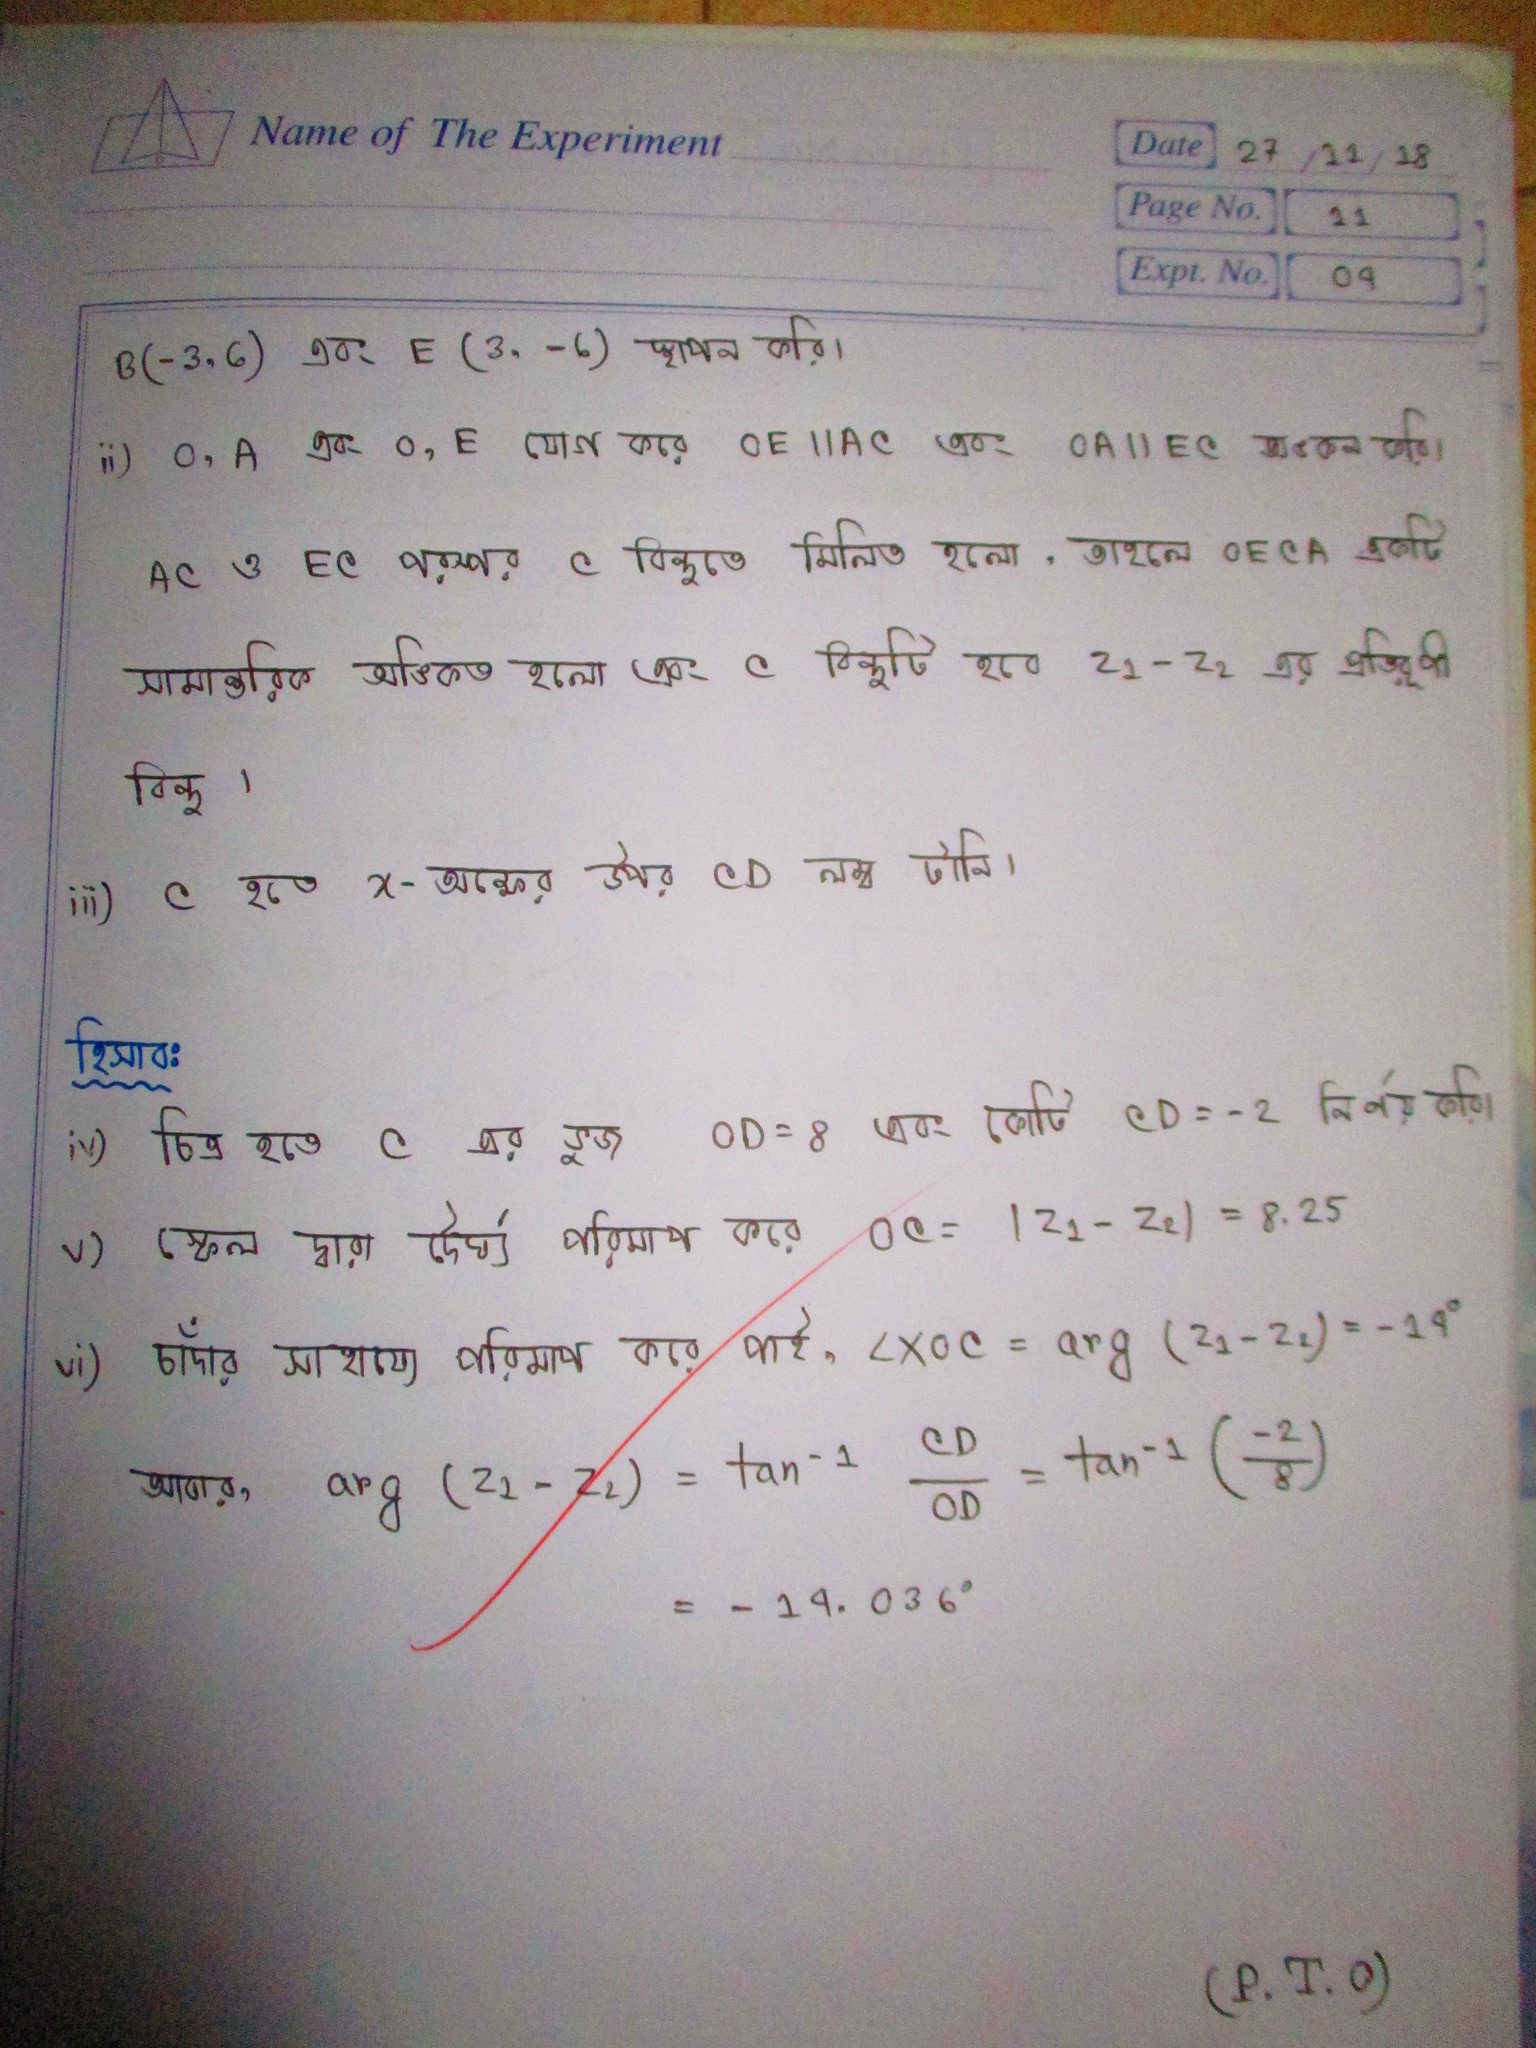 Name of The Experiment
Date 27/11/18
Page No. 11
Expt. No. 04
B(-3,6) এবং E (3, -6) স্থাপন করি।
ii) O, A এবং O, E যোগ করে OE||AC এবং OA||EC অংকন করি।
AC ও EC পরস্পর C বিন্দুতে মিলিত হলো, তাহলে OECA একটি
সামান্তরিক অংকিত হলো এবং C বিন্দুটি হবে z₁ - z₂ এর প্রতিরূপী
বিন্দু ।
iii) C হতে x-অক্ষের উপর CD লম্ব টানি।
হিসাবঃ
iv) চিত্র হতে C এর ভুজ OD = 8 এবং কোটি CD = -2 নির্ণয় করি।
v) স্কেল দ্বারা দৈর্ঘ্য পরিমাপ করে OC = |z₁ - z₂| = 8.25
vi) চাঁদার সাহায্যে পরিমাপ করে পাই, ∠XOC = arg (z₁ - z₂) = -14°
আবার, arg (z₁ - z₂) = tan⁻¹ CD/OD = tan⁻¹ (-2/8)
= -14.036°
(P.T.O)